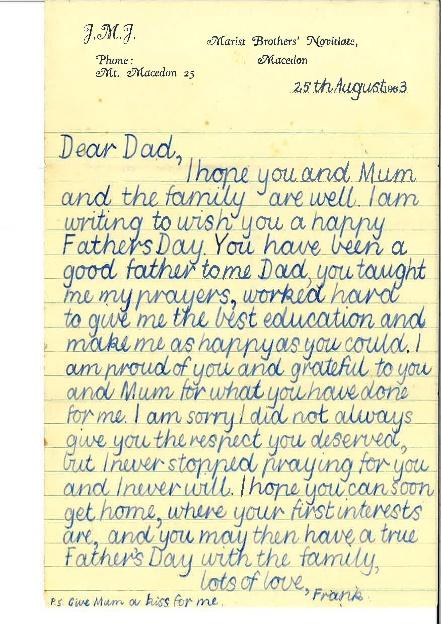 J.M.J.
Marist Brothers' Novitiate,
Phone:
Macedon
Mt. Macedon 25
25th August 1963
Dear Dad,
I hope you and Mum
and the family are well. I am
writing to wish you a happy
Fathers Day. You have been a
good father to me Dad, you taught
me my prayers, worked hard
to give me the best education and
make me as happy as you could. I
am proud of you and grateful to you
and Mum for what you have done
for me. I am sorry I did not always
give you the respect you deserved,
but I never stopped praying for you
and I never will. I hope you can soon
get home, where your first interests
are, and you may then have a true
Father's Day with the family,
lots of love,
Frank.
P.S. Give Mum a kiss for me.